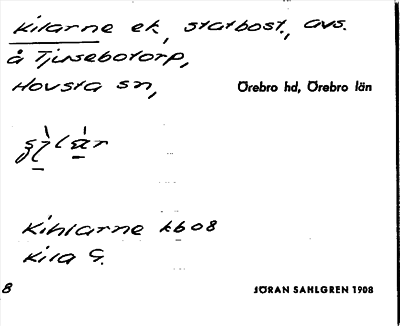 Kilarne ek, statbost., avs.
å Tjusebotorp,
Hovsta sn,
Örebro hd, Örebro län
Kihlarne kb08
Kila G.
8
JÖRAN SAHLGREN 1908